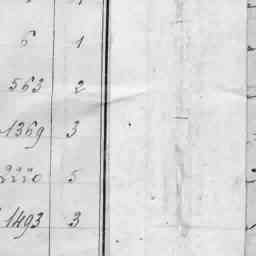 6 1
563 2
1369 3
2220 5
1493 3